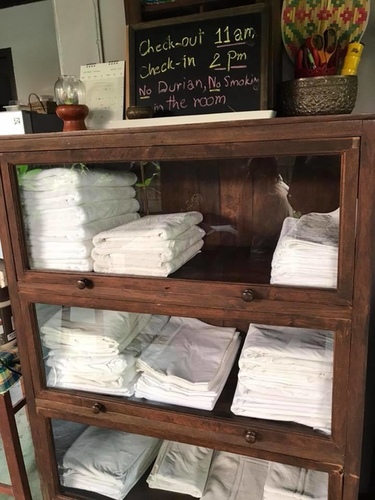 Check-out 11am
Check-in 2pm
No Durian, No Smoking
in the room